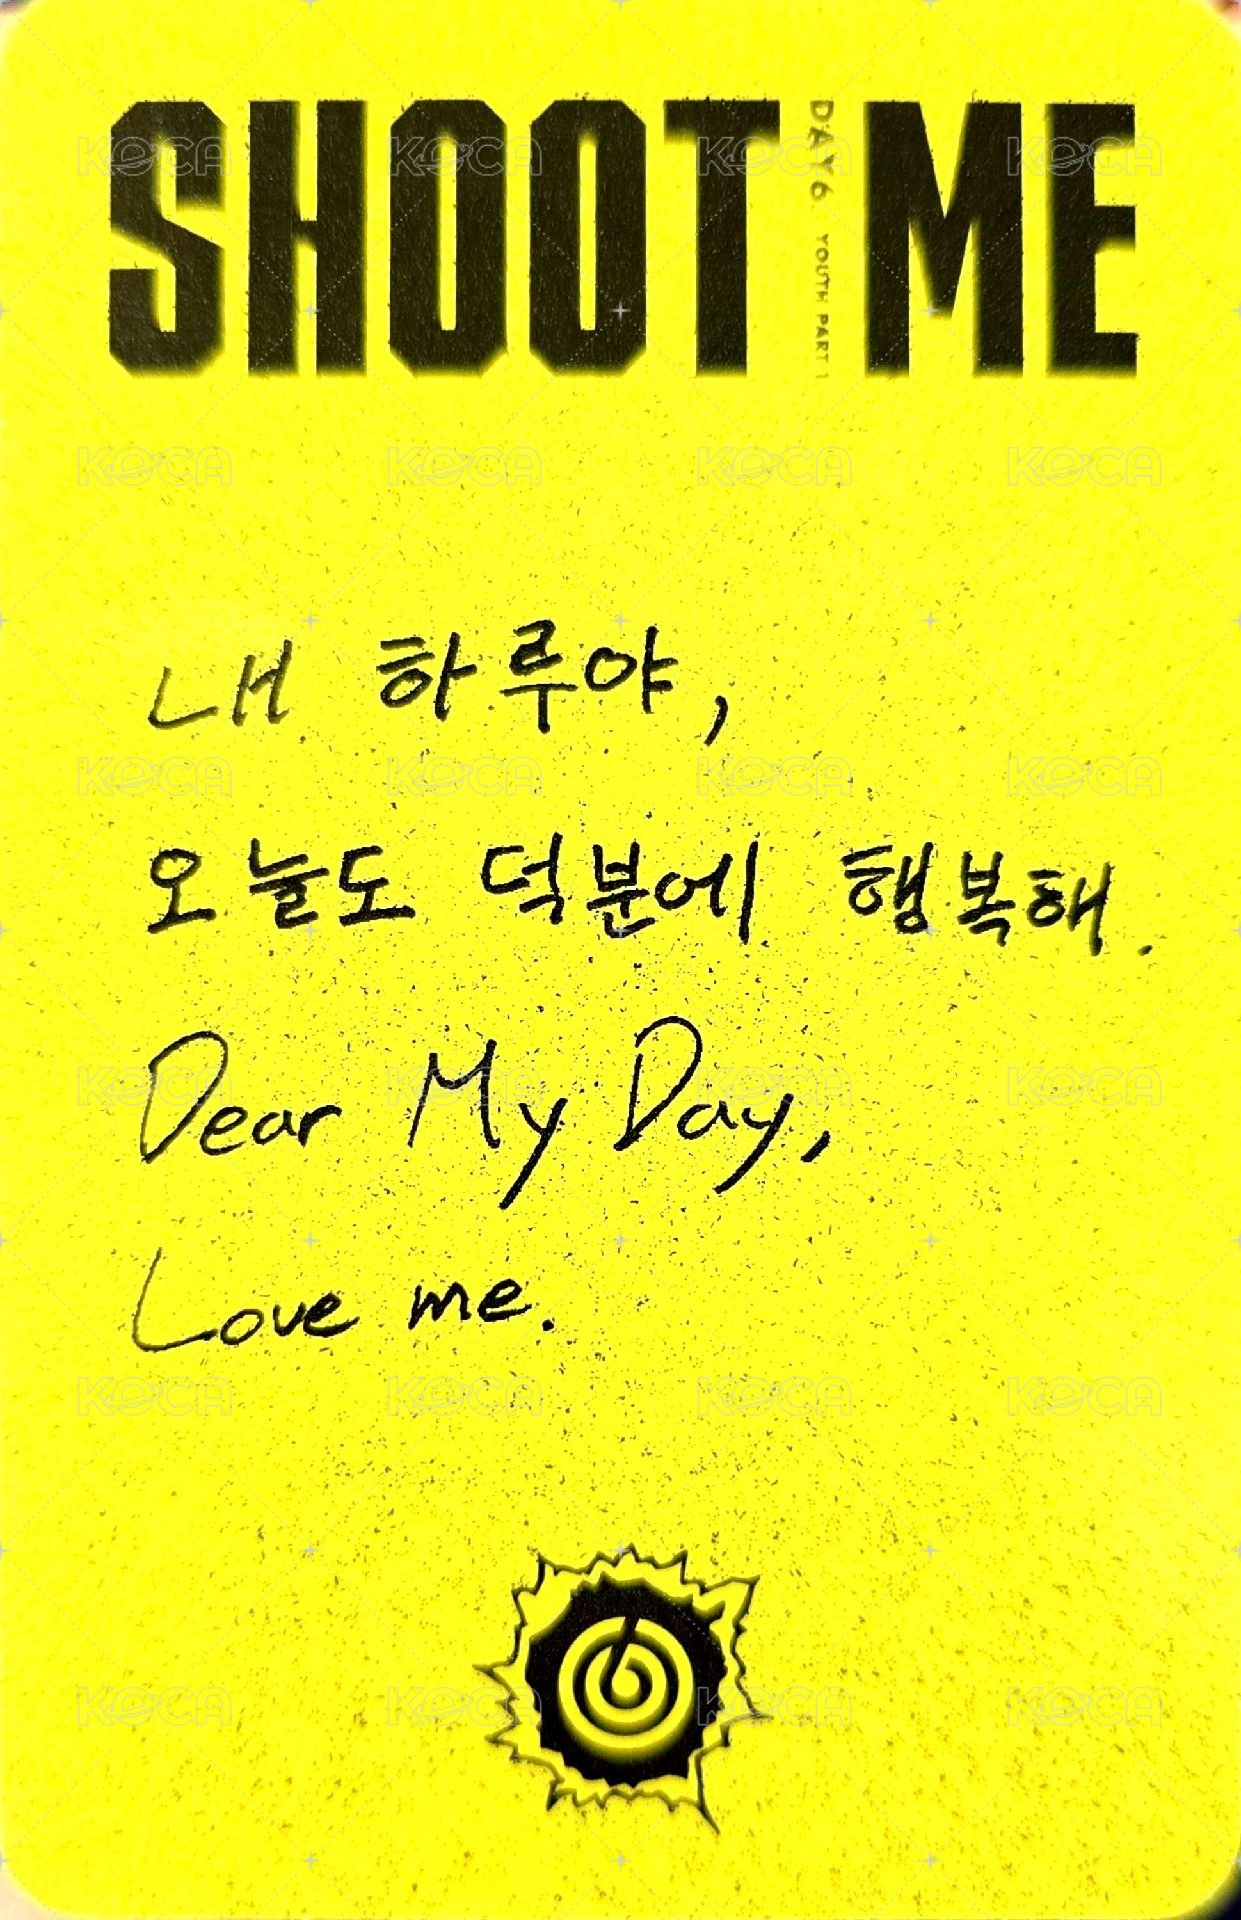 SHOOT ME
DAY6 YOUTH PART 1
내 하루야,
오늘도 덕분에 행복해.
Dear My Day,
Love me.
KOCA